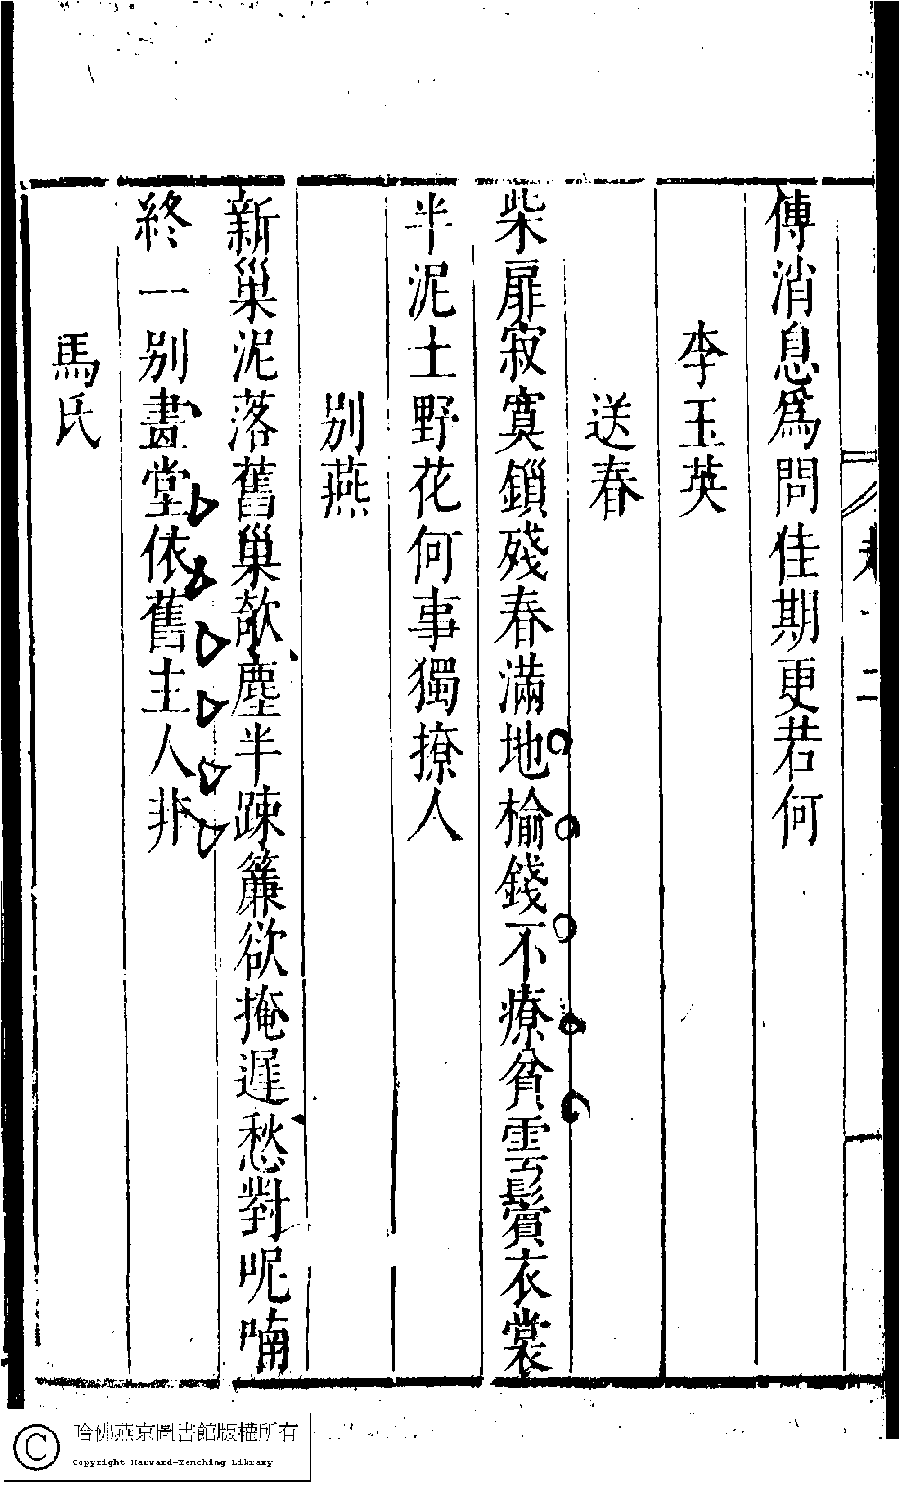 傳消息爲問佳期更若何
李玉英
送春
柴扉寂寞鎖殘春滿地榆錢不療貧雲鬢衣裳
半泥土野花何事獨撩人
别燕
新巢泥落舊巢欹塵半疎簾欲掩遲愁對呢喃
終一别畫堂依舊主人非
馬氏
二
哈佛燕京圖書館版權所有
Copyright Harvard-Yenching Library